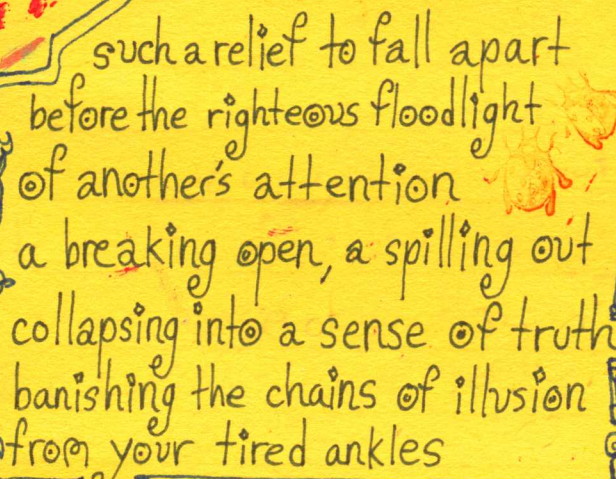 such a relief to fall apart
before the righteous floodlight
of another's attention
a breaking open, a spilling out
collapsing into a sense of truth
banishing the chains of illusion
from your tired ankles